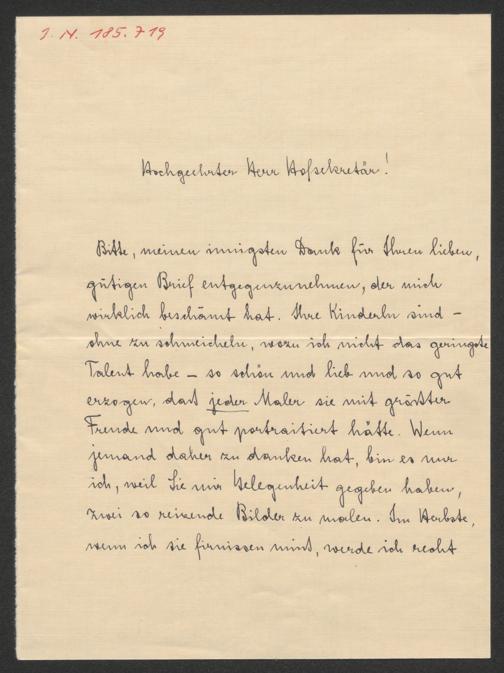 J. N. 185.719
Hochgeehrter Herr Hofsekretär!
Bitte, meinen innigsten Dank für Ihren lieben,
gütigen Brief entgegenzunehmen, der mich
wirklich beschämt hat. Ihre Kinderln sind –
ohne zu schmeicheln, wozu ich nicht das geringste
Talent habe – so schön und lieb und so gut
erzogen, daß jeder Maler sie mit größter
Freude und gut portraitiert hätte. Wenn
jemand daher zu danken hat, bin es nur
ich, weil Sie mir Gelegenheit gegeben haben,
zwei so reizende Bilder zu malen. Im Herbste,
wenn ich sie firnissen, werde ich recht